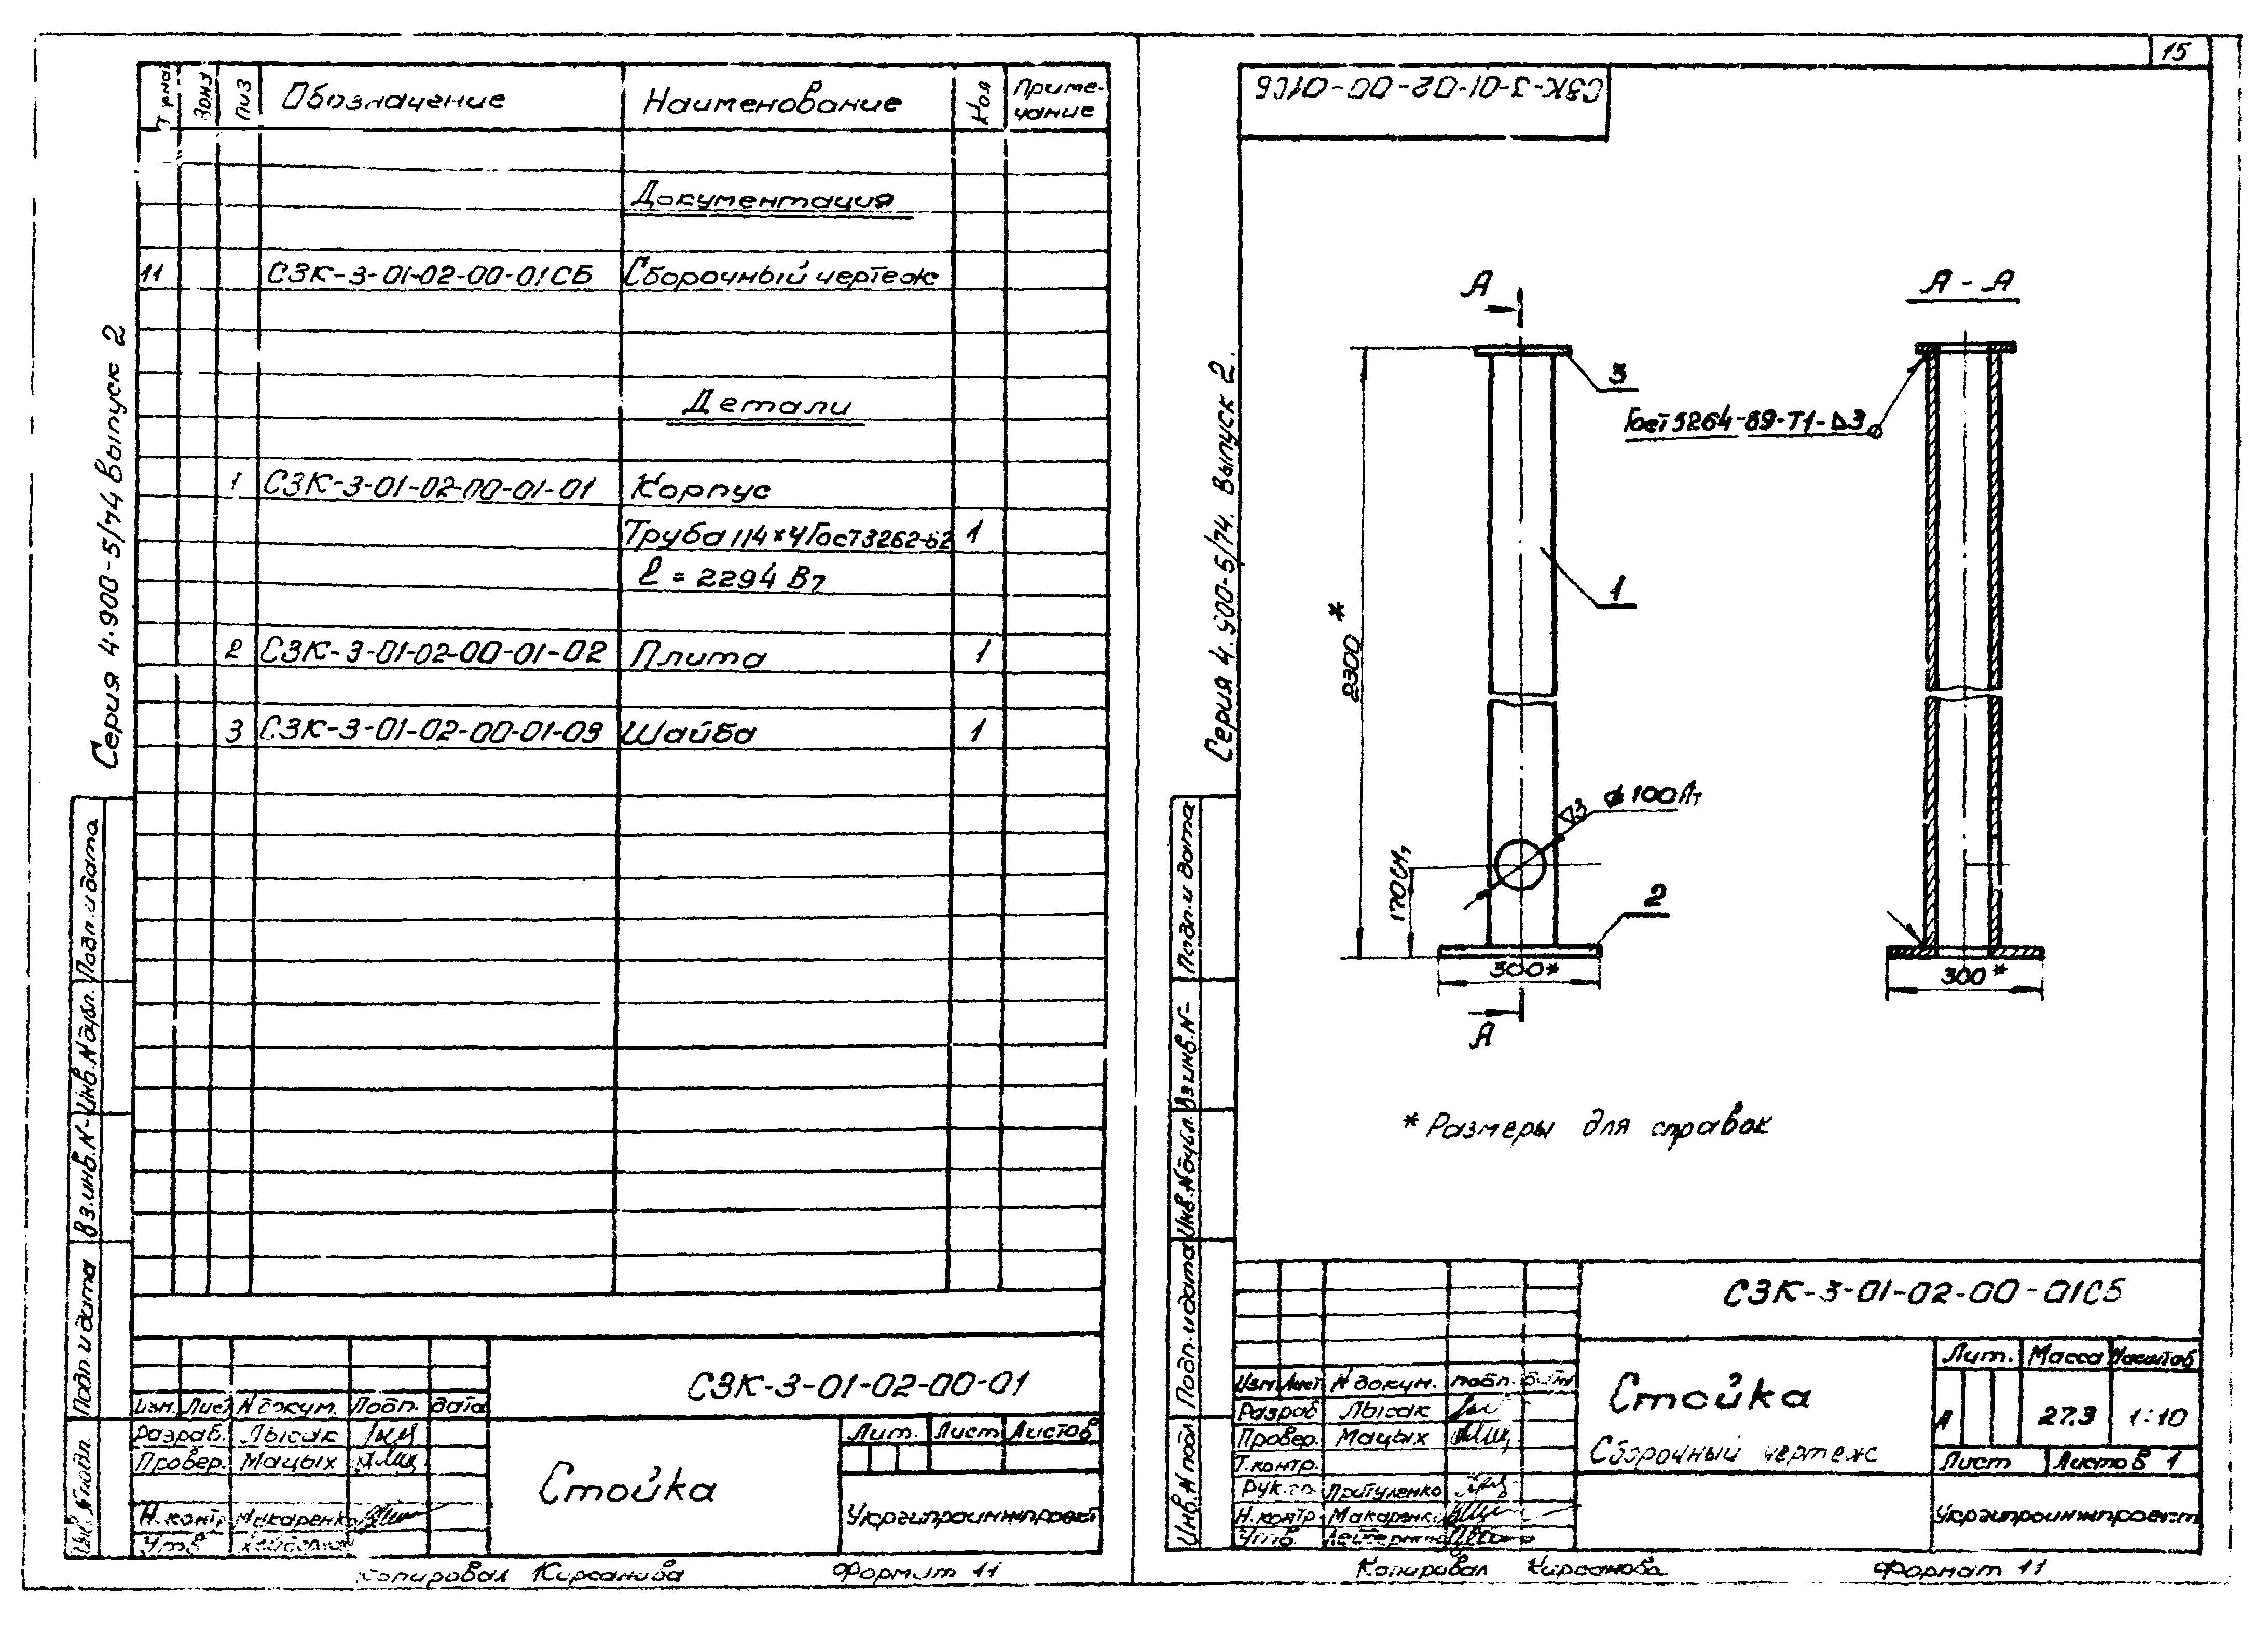 Формат Зона Поз Обозначение Наименование Кол. Приме-
чание
Документация
11 СЗК-3-01-02-00-01СБ Сборочный чертеж
Детали
1 СЗК-3-01-02-00-01-01 Корпус
Труба 114×4 Гост 3262-62 1
ℓ = 2294 В7
2 СЗК-3-01-02-00-01-02 Плита 1
3 СЗК-3-01-02-00-01-03 Шайба 1
Серия 4.900-5/74 Выпуск 2
Подп. и дата
Инв.N дубл.
Вз.инв.N-
Подп. и дата
Инв.N подл.
СЗК-3-01-02-00-01
Изм. Лист N докум. Подп. дата
Разраб. Лысак
Провер. Мацых
Н.контр Макаренко
Утв.
Стойка
Лит. Лист Листов
Укргипроинжпроект
Копировал Кирсанова Формат 11
15
СЗК-3-01-02-00-01СБ
А
А - А
3
Гост 5264-69-Т1-⊿3
1
2300*
⌀100А7
▽3
170СМ7
2
300*
300*
А
* Размеры для справок
Серия 4.900-5/74. Выпуск 2.
Подп. и дата
Вз инв.N-
Инв.N дубл.
Подп. и дата
Инв.N подл
СЗК-3-01-02-00-01СБ
Изм. Лист N докум. подп. дата
Разраб Лысак
Провер. Мацых
Т.контр.
Рук.гр. Притуленко
Н.контр Макаренко
Утв.
Стойка
Сборочный чертеж
Лит. Масса Масштаб
А 27.3 1:10
Лист Листов 1
Укргипроинжпроект
Копировал Кирсанова Формат 11